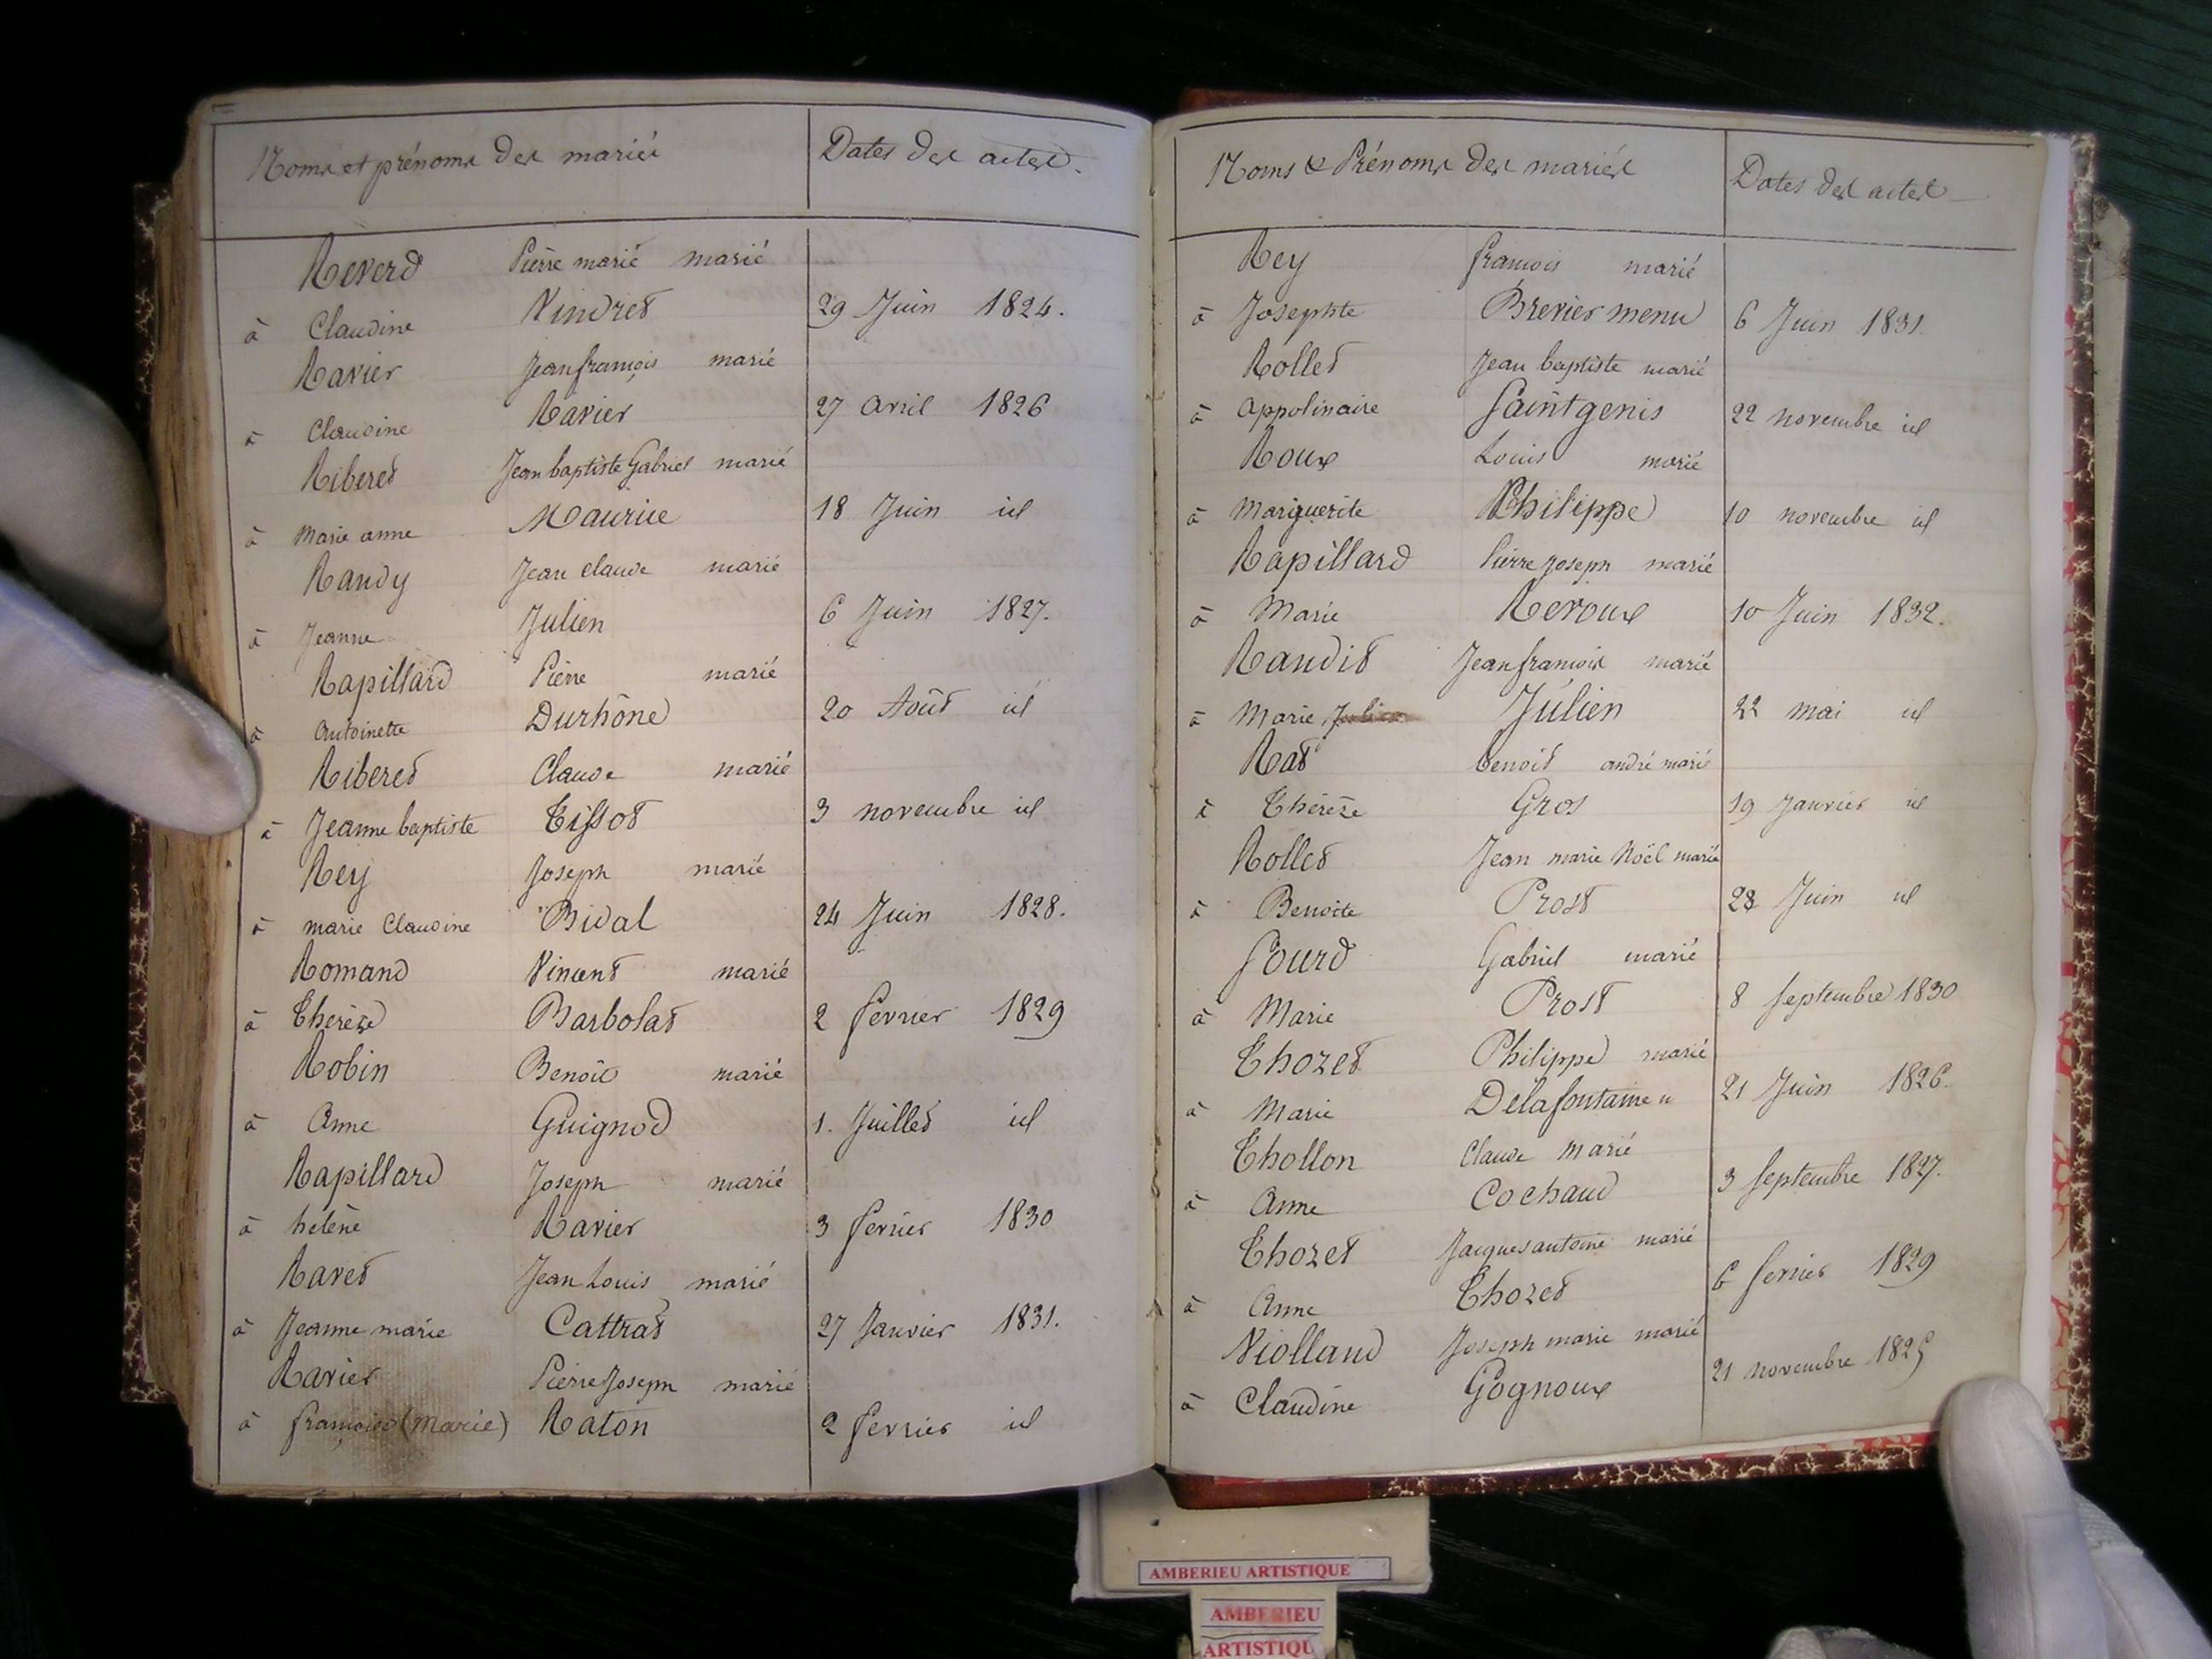 Noms et prénoms des mariés Dates des actes.
Reverd Pierre marie marié
à Claudine Vindret 29 Juin 1824.
Ravier Jean françois marié
à Claudine Ravier 27 avril 1826
Riberet Jean baptiste Gabriel marié
à Marie anne Maurice 18 Juin id
Randy Jean claude marié
à Jeanne Julien 6 Juin 1827.
Rapillard Pierre marié
à Antoinette Durhône 20 Août id
Riberet Claude marié
à Jeanne baptiste Tissot 3 novembre id
Rey Joseph marié
à marie Claudine Bidal 24 Juin 1828.
Romand Vincent marié
à Thérèze Barbolat 2 fevrier 1829
Robin Benoit marié
à Anne Guignod 1. Juillet id
Rapillard Joseph marié
à hélène Ravier 3 fevrier 1830
Ravet Jean Louis marié
à Jeanne marie Cattrat 27 Janvier 1831.
Ravier Pierre Joseph marié
à françoise (Marie) Raton 2 fevrier id
Noms & Prénoms des mariés Dates des actes
Rey françois marié
à Josephte Brevier menu 6 Juin 1831.
Rollet Jean baptiste marié
à Appolinaire Saintgenis 22 novembre id
Roux Louis marié
à Marguerite Philippe 10 novembre id
Rapillard Pierre Joseph marié
à Marie Reroux 10 Juin 1832.
Randit Jean françois marié
à Marie Julien 22 mai id
Rat benoit andré marié
à Thérèze Gros 19 Janvier id
Rollet Jean marie Noël marié
à Benoite Prost 28 Juin id
Sourd Gabriel marié
à Marie Prost 8 Septembre 1830
Thozet Philippe marié
à Marie Delafontaine 21 Juin 1826.
Thollon Claude Marié
à Anne Cochaud 3 Septembre 1827.
Thozet Jacques antoine marié
à Anne Thozet 6 fevrier 1829
Violland Joseph marie marié
à Claudine Gognoux 21 novembre 1825
AMBERIEU ARTISTIQUE
AMBERIEU
ARTISTIQU